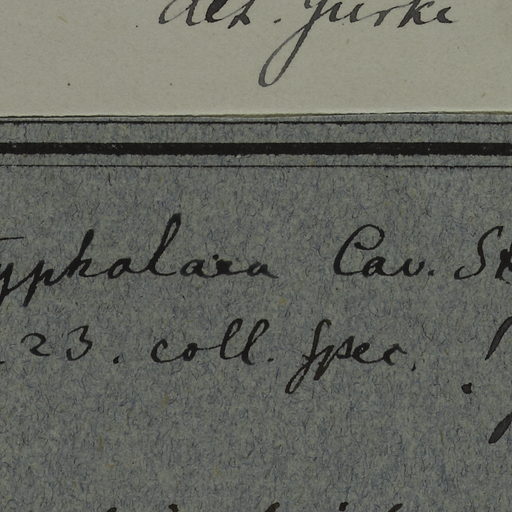 det. Gürke
yphalaea Cav. St
23. coll. spec. !